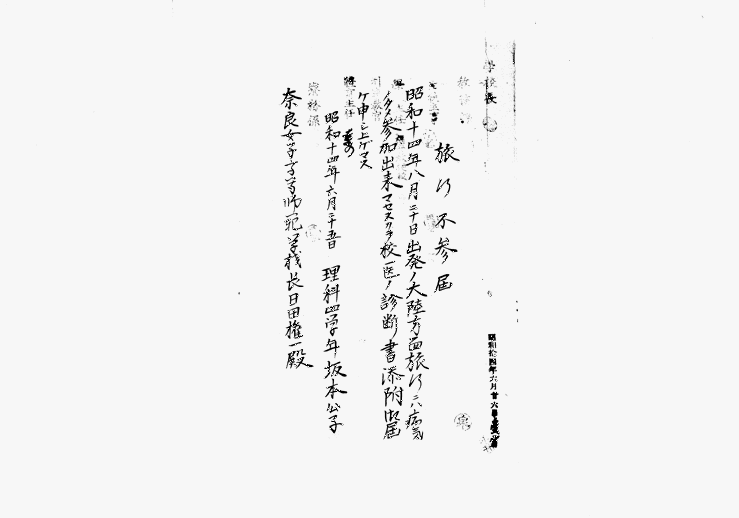 学校長
昭和拾四年六月廿六日
旅行不参届
昭和十四年八月二十日出発ノ大陸方面旅行ニハ病気
ノタメ参加出来マセヌカラ校医ノ診断書添附御届
ケ申シ上ゲマス
昭和十四年六月二十五日 理科四学年 坂本公子
奈良女子高等師範学校長日田権一殿